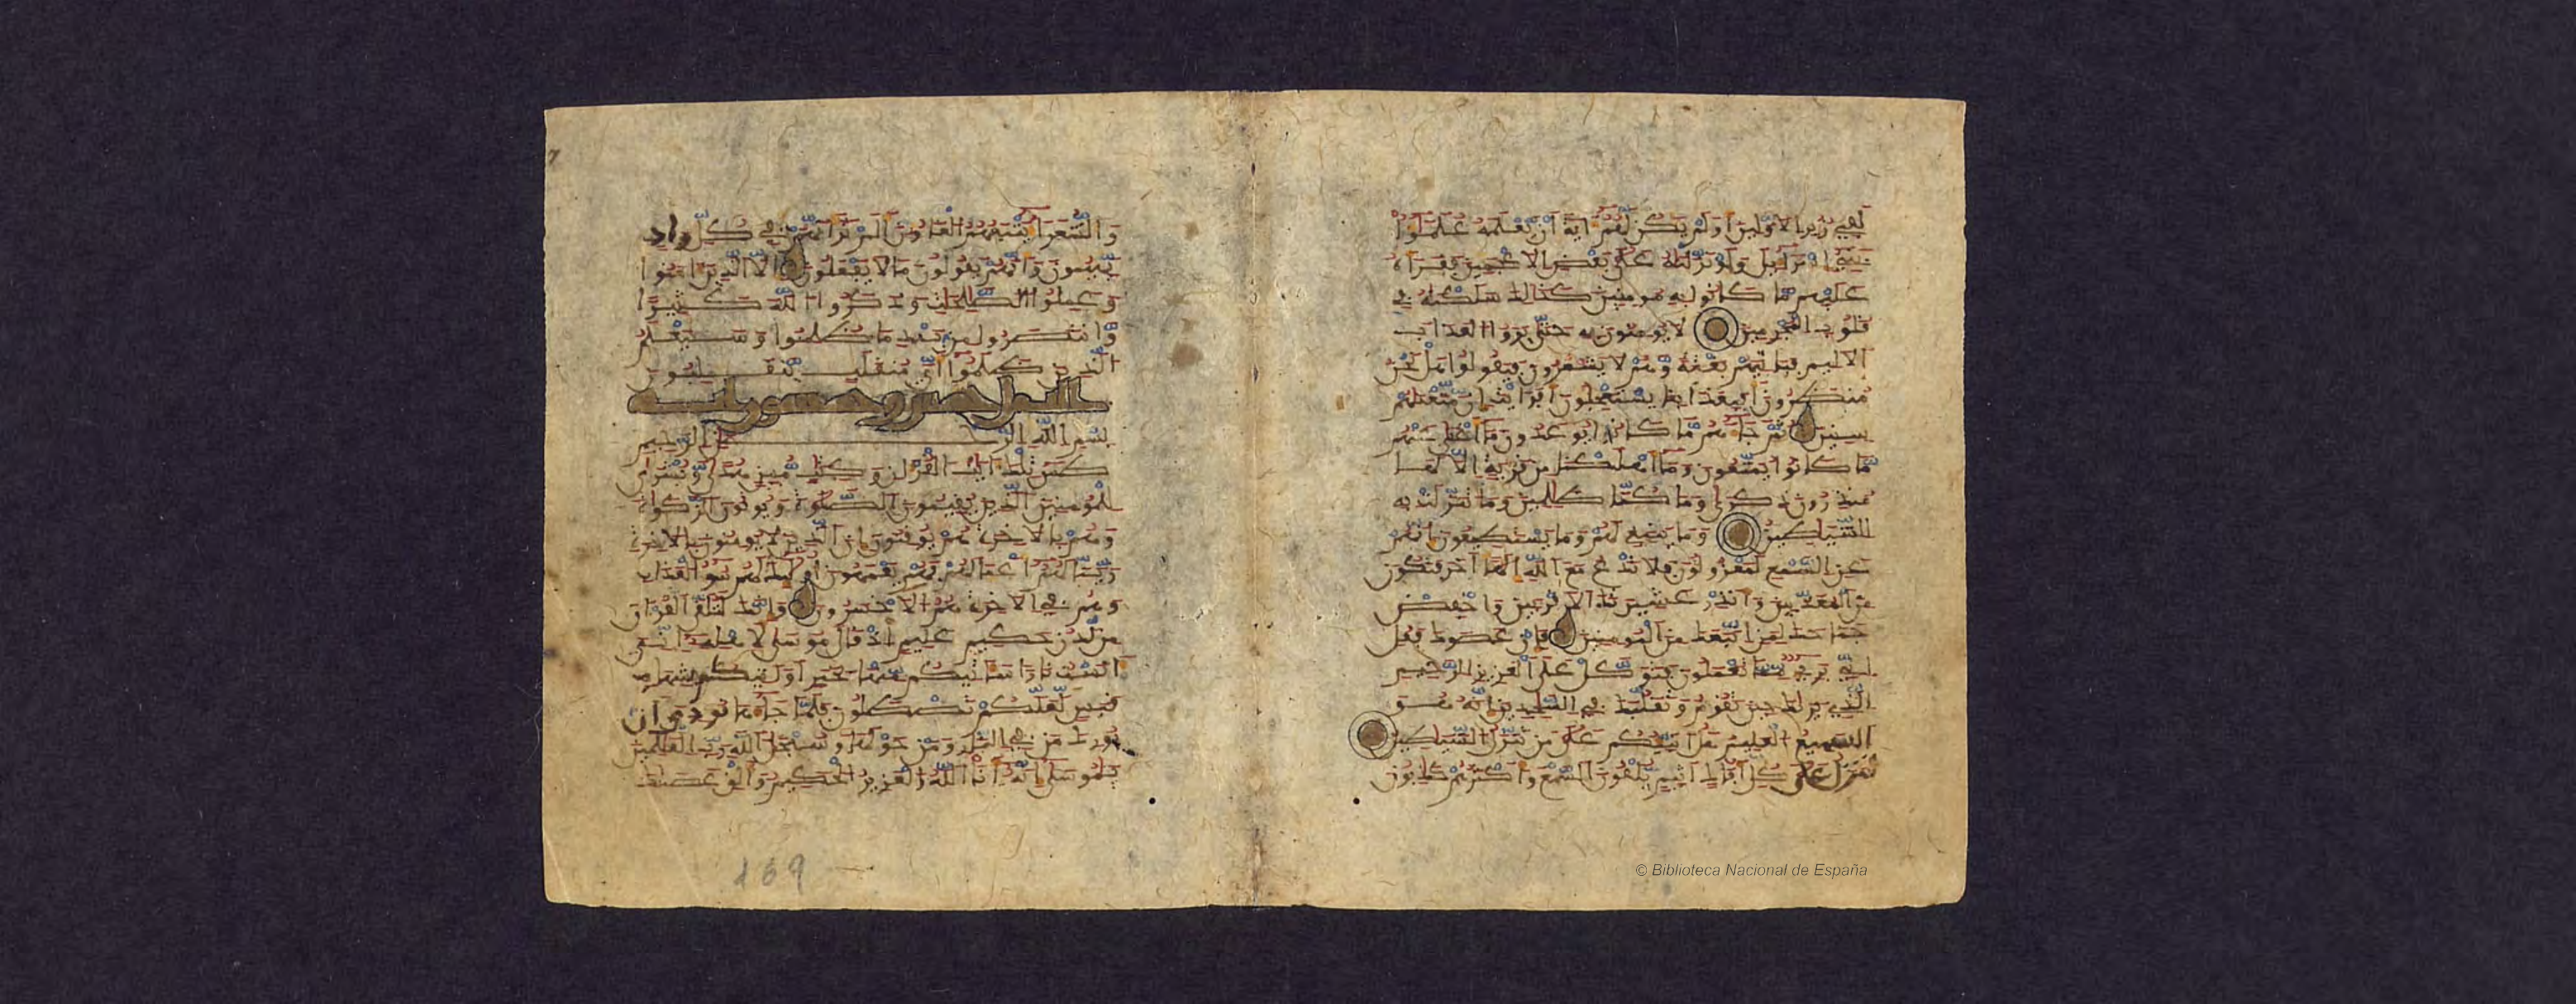 لَفِي زُبُرِ الاوَّلِينَ أَوَلَمْ يَكُن لَّهُمُۥٓ ءَايَةً أَنْ يَّعْلَمَهُۥ عُلَمَٰٓؤُاْ
بَنِيٓ إِسْرَٰٓءِيلَ وَلَوْ نَزَّلْنَٰهُ عَلَىٰ بَعْضِ الاعْجَمِينَ فَقَرَأَهُۥ
عَلَيْهِم مَّا كَانُواْ بِهِۦ مُومِنِينَ كَذَٰلِكَ سَلَكْنَٰهُ فِي
قُلُوبِ الْمُجْرِمِينَ لَا يُومِنُونَ بِهِۦ حَتَّىٰ يَرَوُاْ الْعَذَابَ
الالِيمَ فَيَاتِيَهُم بَغْتَةً وَهُمْ لَا يَشْعُرُونَ فَيَقُولُواْ هَلْ نَحْنُ
مُنظَرُونَ أَفَبِعَذَابِنَا يَسْتَعْجِلُونَ أَفَرَٰيْتَ إِن مَّتَّعْنَٰهُمْ
سِنِينَ ثُمَّ جَآءَهُم مَّا كَانُواْ يُوعَدُونَ مَآ أَغْنَىٰ عَنْهُم
مَّا كَانُواْ يُمَتَّعُونَ وَمَآ أَهْلَكْنَا مِن قَرْيَةٍ الَّا لَهَا
مُنذِرُونَ ذِكْرَىٰ وَمَا كُنَّا ظَٰلِمِينَ وَمَا تَنَزَّلَتْ بِهِ
الشَّيَٰطِينُ وَمَا يَنۢبَغِي لَهُمْ وَمَا يَسْتَطِيعُونَ إِنَّهُمْ
عَنِ السَّمْعِ لَمَعْزُولُونَ فَلَا تَدْعُ مَعَ اللَّهِ إِلَٰهًا آخَرَ فَتَكُونَ
مِنَ الْمُعَذَّبِينَ وَأَنذِرْ عَشِيرَتَكَ الاقْرَبِينَ وَاخْفِضْ
جَنَاحَكَ لِمَنِ اتَّبَعَكَ مِنَ الْمُومِنِينَ فَإِنْ عَصَوْكَ فَقُلِ
انِّي بَرِيٓءٌ مِّمَّا تَعْمَلُونَ فَتَوَكَّلْ عَلَى الْعَزِيزِ الرَّحِيمِ
الَّذِي يَرَىٰكَ حِينَ تَقُومُ وَتَقَلُّبَكَ فِي السَّٰجِدِينَ إِنَّهُۥ هُوَ
السَّمِيعُ الْعَلِيمُ هَلُ انَبِّئُكُمْ عَلَىٰ مَن تَنَزَّلُ الشَّيَٰطِينُ
تَنَزَّلُ عَلَىٰ كُلِّ أَفَّاكٍ أَثِيمٍ يُلْقُونَ السَّمْعَ وَأَكْثَرُهُمْ كَٰذِبُونَ
وَالشُّعَرَآءُ يَتْبَعُهُمُ الْغَاوُۥنَ أَلَمْ تَرَ أَنَّهُمْ فِي كُلِّ وَادٍ
يَهِيمُونَ وَأَنَّهُمْ يَقُولُونَ مَا لَا يَفْعَلُونَ إِلَّا الَّذِينَ ءَامَنُواْ
وَعَمِلُواْ الصَّٰلِحَٰتِ وَذَكَرُواْ اللَّهَ كَثِيرًا
وَانتَصَرُواْ مِنۢ بَعْدِ مَا ظُلِمُواْ وَسَيَعْلَمُ
الَّذِينَ ظَلَمُوٓاْ أَيَّ مُنقَلَبٍ يَنقَلِبُونَ
النمل خمس وتسعون ءاية
بِسْمِ اللَّهِ الرَّحْمَٰنِ الرَّحِيمِ
طَسٓ تِلْكَ ءَايَٰتُ الْقُرْءَانِ وَكِتَابٍ مُّبِينٍ هُدًى وَبُشْرَىٰ
لِلْمُومِنِينَ الَّذِينَ يُقِيمُونَ الصَّلَوٰةَ وَيُوتُونَ الزَّكَوٰةَ
وَهُم بِالاخِرَةِ هُمْ يُوقِنُونَ إِنَّ الَّذِينَ لَا يُومِنُونَ بِالاخِرَةِ
زَيَّنَّا لَهُمُۥٓ أَعْمَٰلَهُمْ فَهُمْ يَعْمَهُونَ أُوْلَٰٓئِكَ الَّذِينَ لَهُمْ سُوٓءُ الْعَذَابِ
وَهُمْ فِي الاخِرَةِ هُمُ الاخْسَرُونَ وَإِنَّكَ لَتُلَقَّى الْقُرْءَانَ
مِن لَّدُنْ حَكِيمٍ عَلِيمٍ إِذْ قَالَ مُوسَىٰ لِأَهْلِهِۦٓ إِنِّيَ
ءَانَسْتُ نَارًا سَـَٔاتِيكُم مِّنْهَا بِخَبَرٍ أَوَ اتِيكُم بِشِهَابِ
قَبَسٍ لَّعَلَّكُمْ تَصْطَلُونَ فَلَمَّا جَآءَهَا نُودِيَ أَنۢ
بُورِكَ مَن فِي النَّارِ وَمَنْ حَوْلَهَا وَسُبْحَٰنَ اللَّهِ رَبِّ الْعَٰلَمِينَ
يَٰمُوسَىٰٓ إِنَّهُۥٓ أَنَا اللَّهُ الْعَزِيزُ الْحَكِيمُ وَأَلْقِ عَصَاكَ
169
© Biblioteca Nacional de España